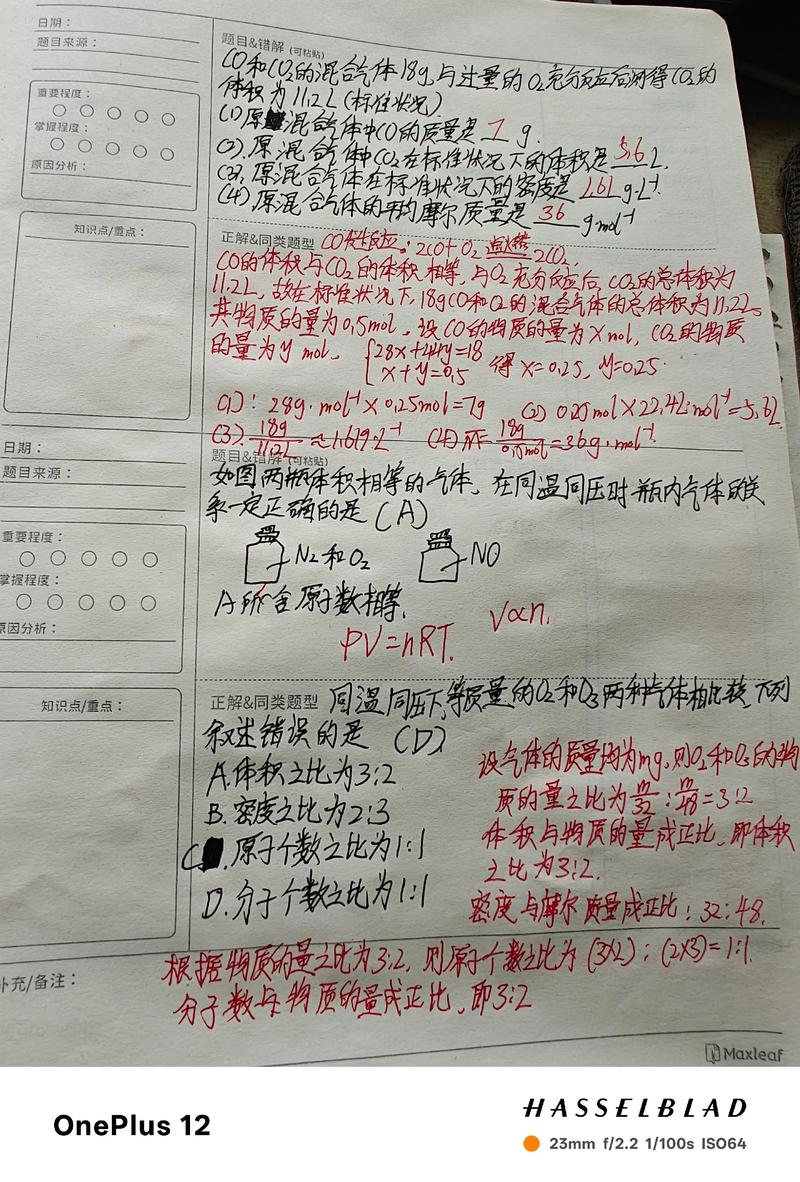 日期：
题目来源：
重要程度：
掌握程度：
原因分析：
知识点/重点：
题目&错解 (可粘贴)
CO和CO₂的混合气体18g,与过量的O₂充分反应后,测得CO₂的
体积为11.2L(标准状况)
(1).原混合气体中CO的质量是 7 g.
(2).原混合气体中CO₂在标准状况下的体积是 5.6 L.
(3).原混合气体在标准状况下的密度是 1.61 g·L⁻¹.
(4).原混合气体的平均摩尔质量是 36 g·mol⁻¹
正解&同类题型 CO发生反应：2CO+O₂ 点燃 2CO₂
CO的体积与CO₂的体积相等,与O₂充分反应后,CO₂的总体积为
11.2L,故在标准状况下,18gCO和O₂的混合气体的总体积为11.2L,
其物质的量为0.5mol,设CO的物质的量为xmol,CO₂的物质
的量为y mol, {28x+44y=18 x+y=0.5 得x=0.25, y=0.25.
(1): 28g·mol⁻¹×0.25mol=7g (2) 0.25mol×22.4L·mol⁻¹=5.6L
(3). 18g/11.2L ≈1.61g·L⁻¹ (4) M=18g/0.5mol=36g·mol⁻¹.
日期：
题目来源：
重要程度：
掌握程度：
原因分析：
知识点/重点：
题目&错解 (可粘贴)
如图两瓶体积相等的气体,在同温同压时瓶内气体的关
系一定正确的是(A)
N₂和O₂ NO
A.所含原子数相等.
PV=nRT. V∝n.
正解&同类题型 同温同压下,等质量的O₂和O₃两种气体相比较,下列
叙述错误的是 (D)
A.体积之比为3:2
B.密度之比为2:3
C.原子个数之比为1:1
D.分子个数之比为1:1
设气体的质量均为mg,则O₂和O₃的物
质的量之比为m/32:m/48=3:2
体积与物质的量成正比,即体积
之比为3:2.
密度与摩尔质量成正比:32:48.
补充/备注：
根据物质的量之比为3:2,则原子个数之比为(3×2):(2×3)=1:1.
分子数与物质的量成正比,即3:2
Maxleaf
OnePlus 12
HASSELBLAD
23mm f/2.2 1/100s ISO64